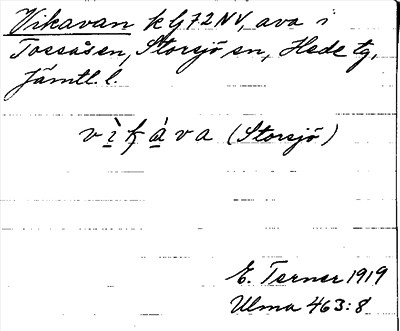 Vikavan k G72NV, ava i
Tossåsen, Storsjö sn, Hede tg,
Jämtl. l.
v ì k á v a (Storsjö)
E. Terner 1919
Ulma 463:8